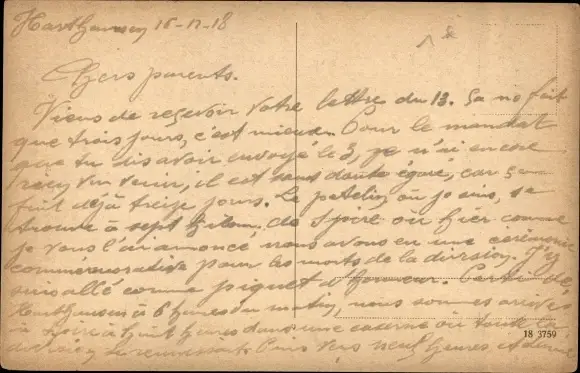 Harthausen 16-12-18
Chers parents.
Viens de reçevoir votre lettre du 13. Ça ne fait
que trois jours, c'est mieux. Pour le mandat
que tu dis avoir envoyé le 3, je n'ai encore
rien vu venir, il est sans doute égaré, car ça
fait déjà treize jours. Le patelin où je suis, se
trouve à sept kilom. de Spire où hier comme
je vous l'ai annoncé nous avons eu une cérémonie
commémorative pour les morts de la division. J'y
suis allé comme piquet d'honneur. Parti de
Harthausen à 6 heures du matin, nous sommes arrivés
à Spire à huit heures dans une caserne où toute la
division se réunissait. Puis vers neuf heures et demie
18 3759